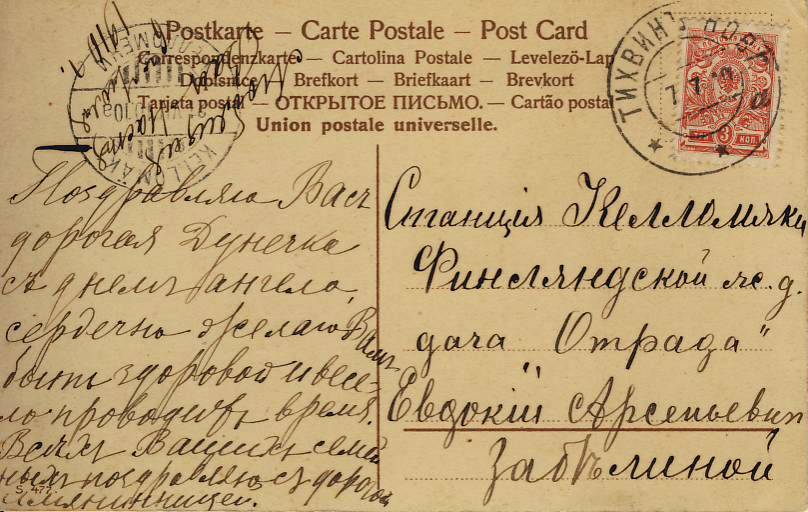 Postkarte – Carte Postale – Post Card
Correspondenzkarte – Cartolina Postale – Levelező-Lap
Dopisnice – Brefkort – Briefkaart – Brevkort
Tarjeta postal – ОТКРЫТОЕ ПИСЬМО. – Cartão postal
Union postale universelle.
ТИХВИНЪ НОВГ.
7 7 10
а
3 КОП 3
KELLOMÄKI
Поздравляю Васъ
дорогая Дунечка
съ днемъ ангела,
сердечно желаю Вамъ
быть здоровой и весе-
ло проводить время.
Всехъ Вашихъ семей
ныхъ поздравляю съ дорогой
имянинницей.
S. 477
Станція Келломяки
Финляндской ж. д.
дача Отрада"
Евдокіи Арсеньевнѣ
Забѣлиной